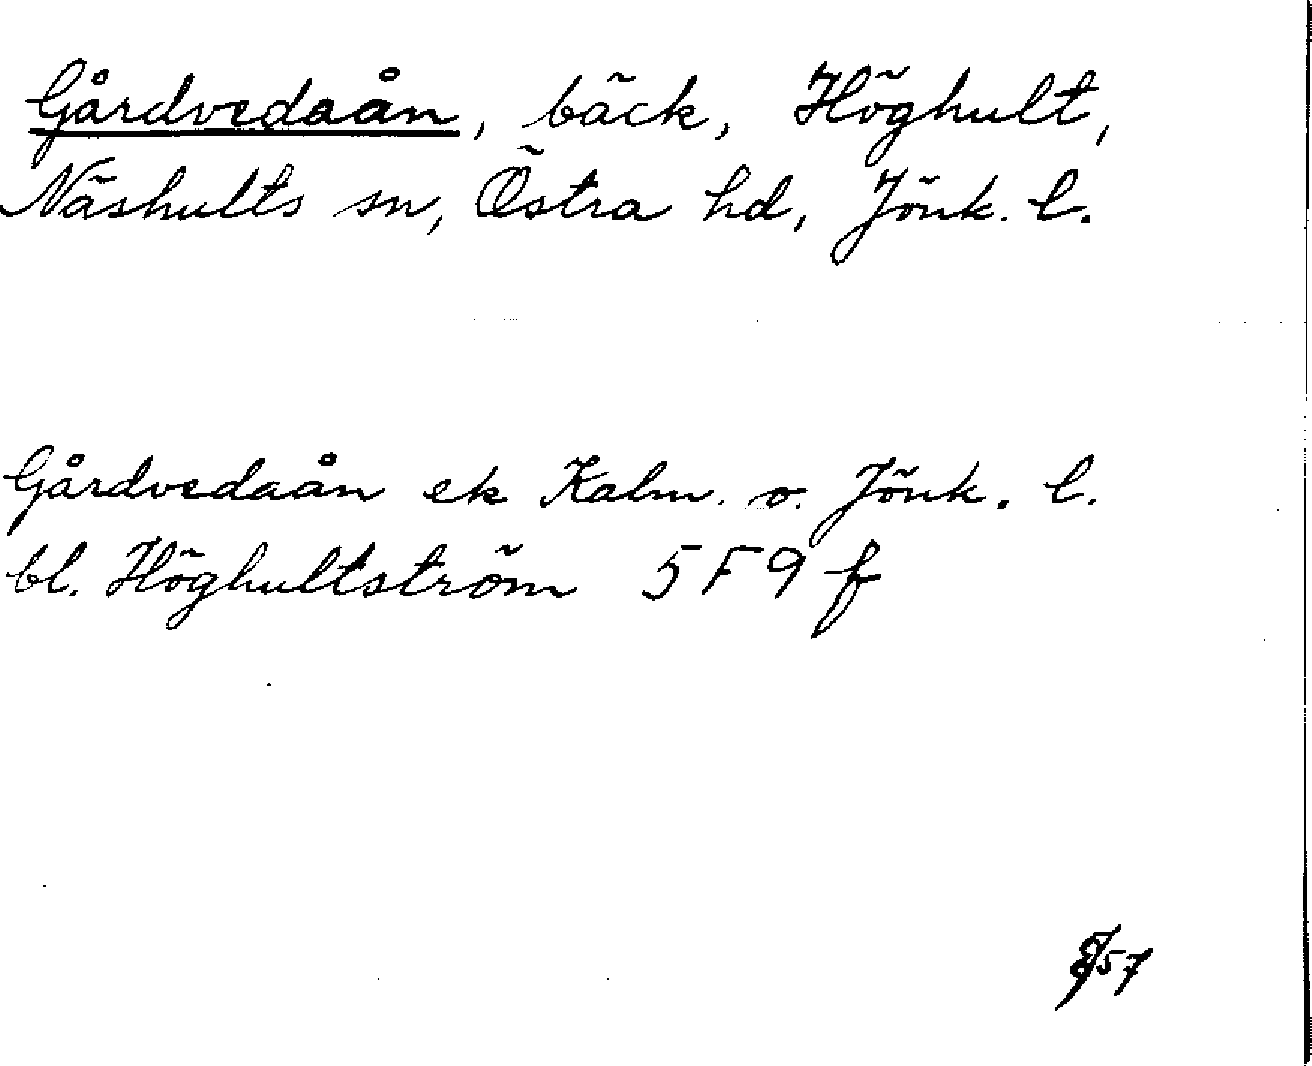 Gårdvedaån, bäck, Höghult,
Näshults sn, Östra hd, Jönk. l.
Gårdvedaån ek Kalm. o. Jönk. l.
bl. Höghultström 5F9f
57